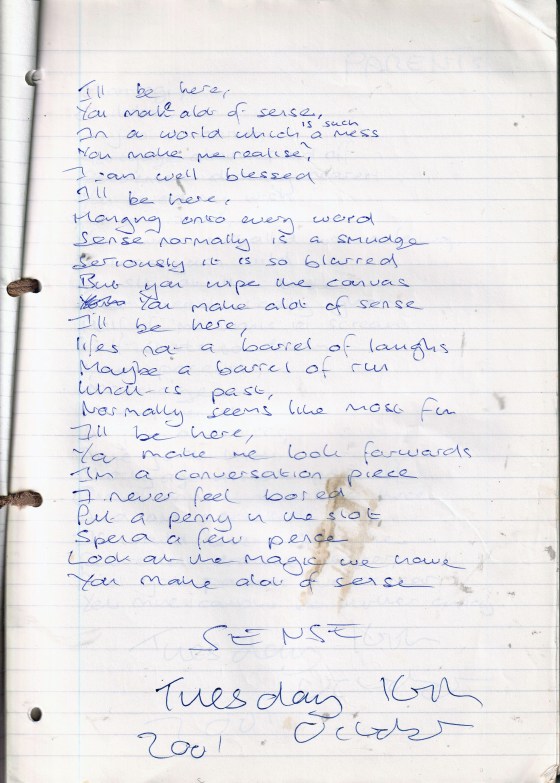 I'll be here,
You make alot of sense,
In a world which is such a mess
You make me realise,
I am well blessed
I'll be here,
Hanging onto every word
Sense normally is a smudge
Seriously it is so blurred
But you wipe the canvas
You make alot of sense
I'll be here,
lifes not a barrel of laughs
Maybe a barrel of rum
What is past,
Normally seems like most fun
I'll be here,
You make me look forwards
I'm a conversation piece
I never feel bored
Put a penny in the slot
Spend a few pence
Look at the magic we have
You make alot of sense
SENSE
Tuesday 16th
2001 October